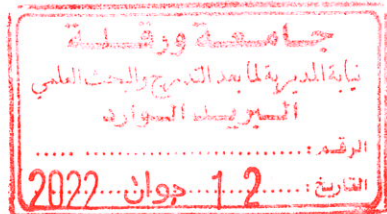 جامعة ورقلة
نيابة المديرية لما بعد التدرج والبحث العلمي
البريد الوارد
الرقم : ......................
التاريخ : ..... 1 2 ... جوان ... 2022